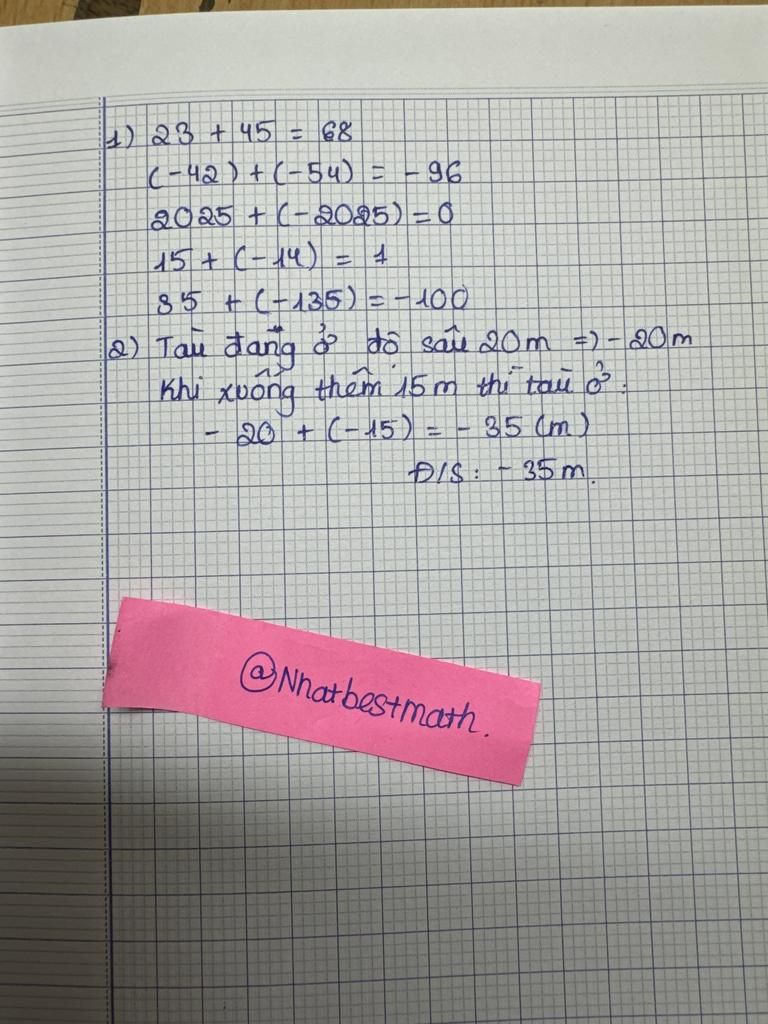 1) 23 + 45 = 68
(-42) + (-54) = -96
2025 + (-2025) = 0
15 + (-14) = 1
35 + (-135) = -100
2) Tàu đang ở độ sâu 20m => -20m
Khi xuống thêm 15m thì tàu ở:
- 20 + (-15) = - 35 (m)
Đ/S: - 35m.
@Nhatbestmath.